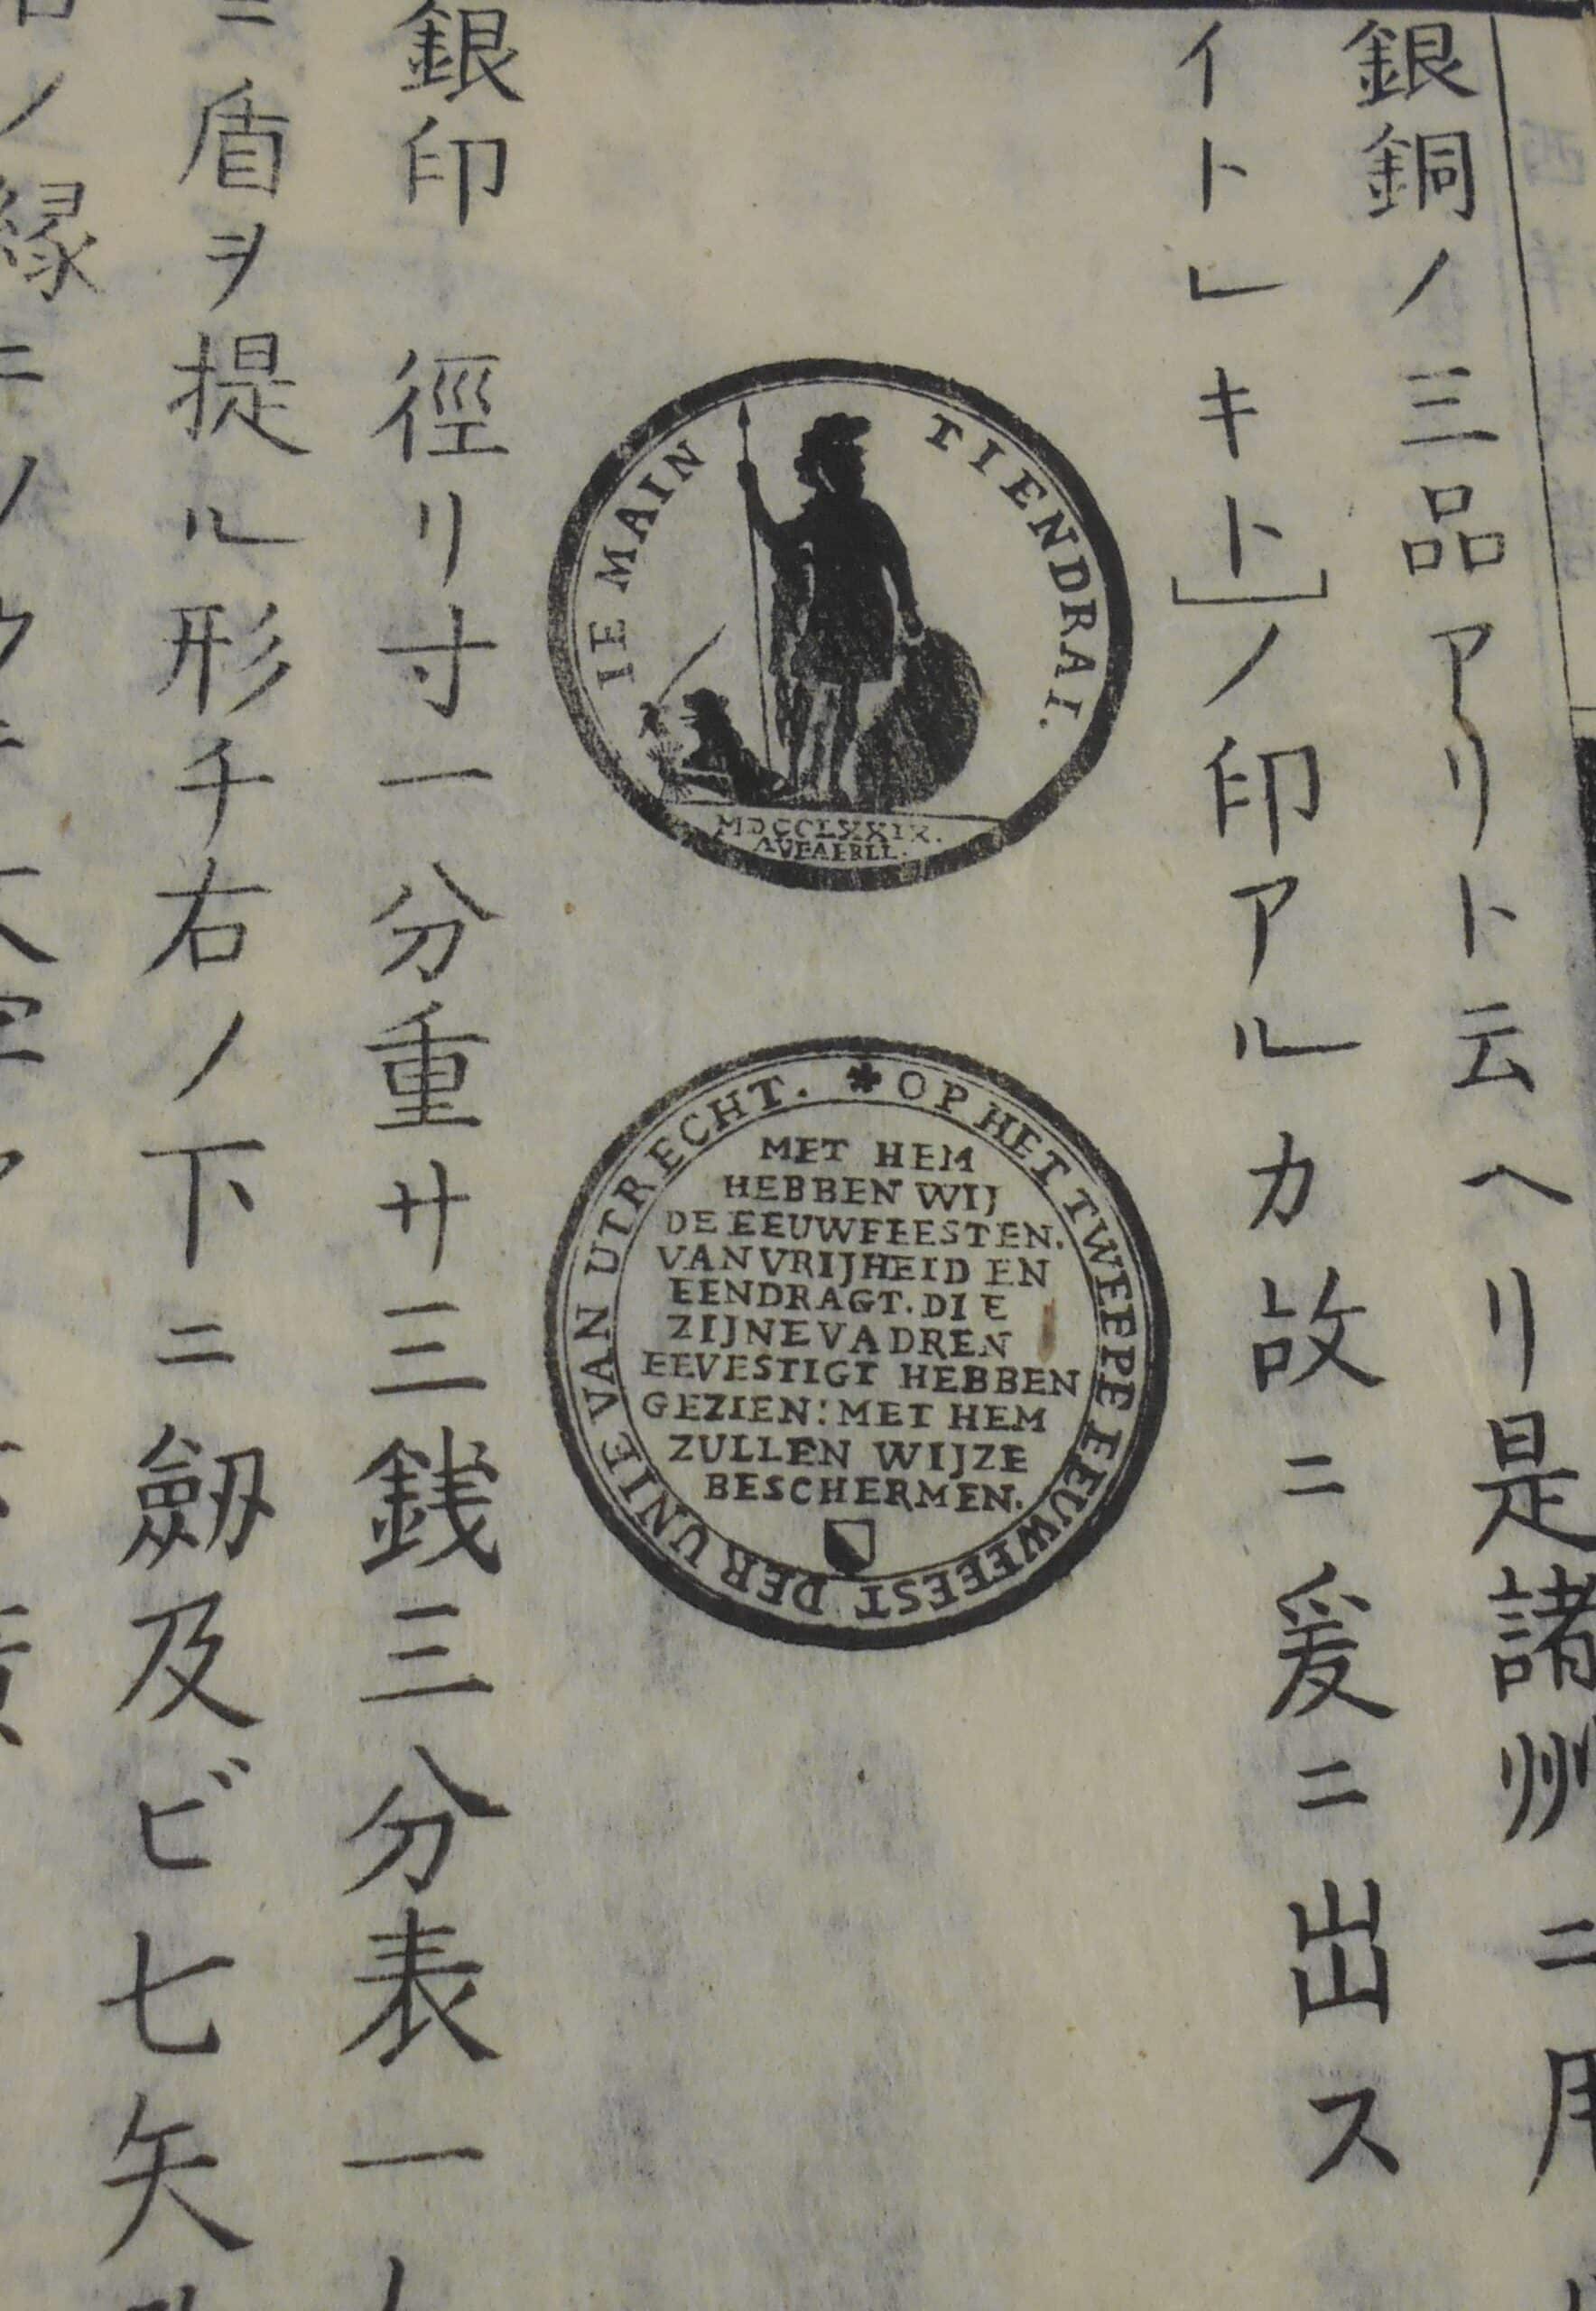 銀銅ノ三品アリト云ヘリ是諸州ニ用
イト」キト」ノ印アルカ故ニ爰ニ出ス
IE MAIN TIENDRAI.
MDCCLXXIX.
✱ OP HET TWEEPE EEUWFEEST DER UNIE VAN UTRECHT.
MET HEM
HEBBEN WIJ
DE EEUWFEESTEN.
VAN VRIJHEID EN
EENDRAGT. DIE
ZIJNE VADREN
EEVESTIGT HEBBEN
GEZIEN: MET HEM
ZULLEN WIJZE
BESCHERMEN.
銀印 徑リ寸一分重サ三銭三分表一
ニ盾ヲ提ル形チ右ノ下ニ劔及ビ七矢
ノ縁ニ